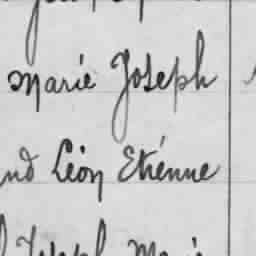 Marie Joseph
Léon Etienne
Joseph Marie